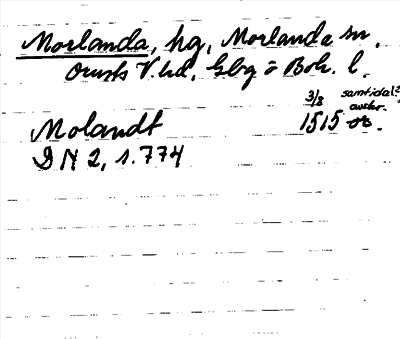 Morlanda, hg, Morlanda sn,
Orusts V. hd, Gbg o Boh. l.
3/8 samtida?
avskr.
Molandt 1515 or.
DN 2, s. 774